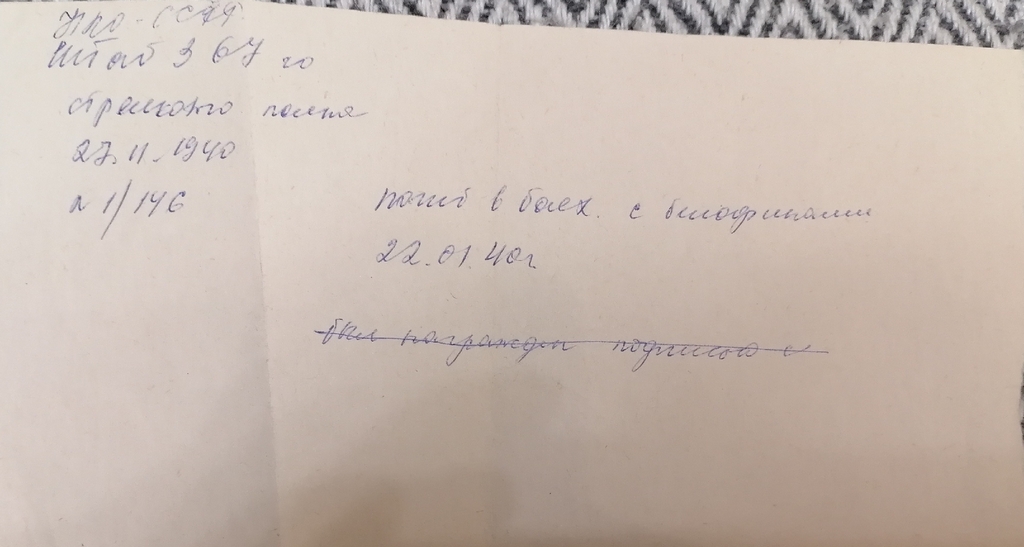 НКО - СССР
Штаб 367 го
стрелкового полка
27.11.1940
N 1/146
погиб в боях. с белофинами
22.01.40г
был награжден подписью с